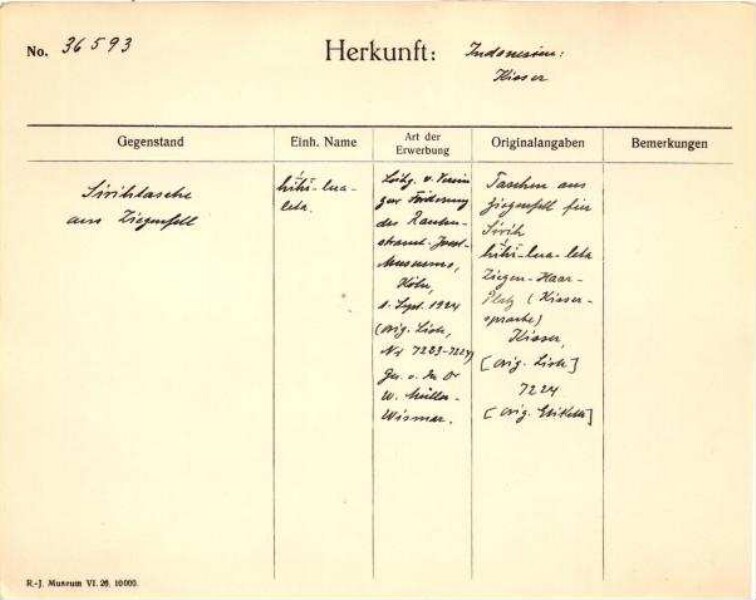 No. 36593
Herkunft: Indonesien:
Kisser
Gegenstand
Einh. Name
Art der
Erwerbung
Originalangaben
Bemerkungen
Sirihtasche
aus Ziegenfell
hihi-lua-
leta.
v. Verein
zur Förderung
des Rauten-
strauch-Joest-
Museums,
Köln,
Sept. 1924
(orig. Liste,
Nr 7223-7224)
Ges. v. Dr
W. Müller-
Wismar.
Taschen aus
Ziegenfell für
Sirih
hihi-lua-leta
Ziegen-Haar-
(Kisser-
sprache)
Kisser,
[orig. Liste]
7224
[orig. Etikett]
R.-J. Museum VI. 26. 10000.